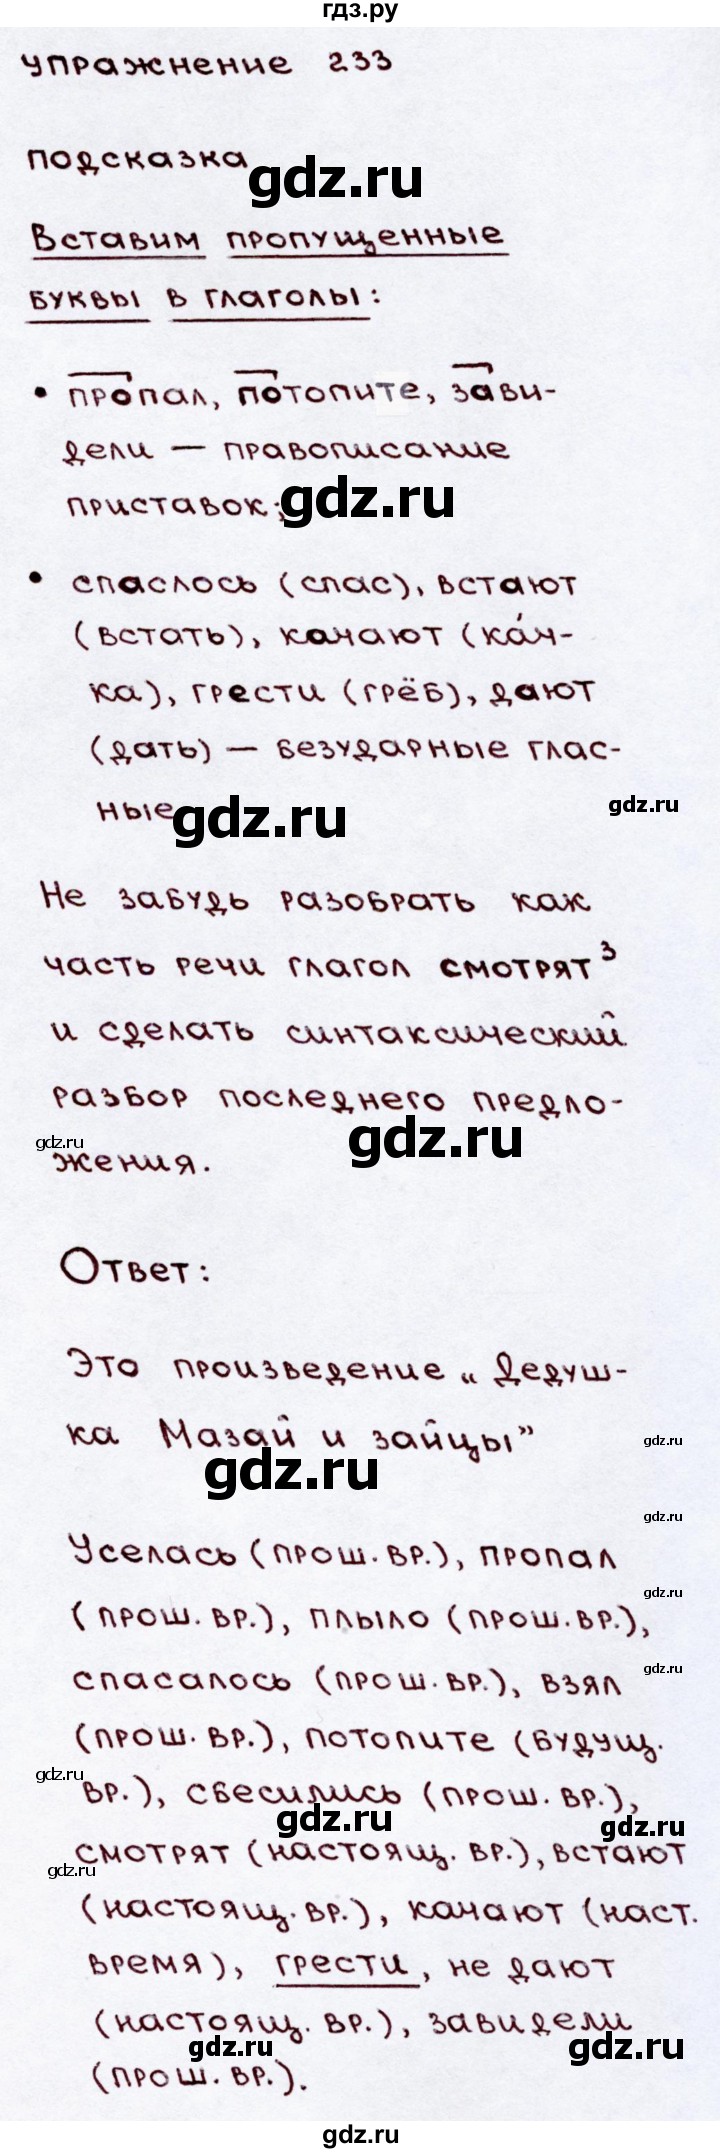 гдз.ру
упражнение 233
подсказка
gdz.ru
Вставим пропущенные
буквы в глаголы:
• пропал, потопите, зави-
дели — правописание
приставок;
gdz.ru
• спаслось (спас), встают
(встать), качают (кáч-
ка), грести (грёб), дают
(дать) — безударные глас-
ные
gdz.ru
gdz.ru
Не забудь разобрать как
часть речи глагол смотрят³
и сделать синтаксический
разбор последнего предло-
gdz.ru
gdz.ru
жения.
Ответ:
Это произведение „Дедуш-
ка Мазай и зайцы”
gdz.ru
gdz.ru
gdz.ru
Уселась (прош. вр.), пропал
gdz.ru
(прош. вр.), плыло (прош. вр.),
gdz.ru
спасалось (прош. вр.), взял
(прош. вр.), потопите (будущ.
gdz.ru
вр.), сбесились (прош. вр.),
gdz.ru
gdz.ru
смотрят (настоящ. вр.), встают
gdz.ru
(настоящ. вр.), качают (наст.
время), грести, не дают
(настоящ. вр.), завидели
gdz.ru
gdz.ru
(прош. вр.).
gdz.ru